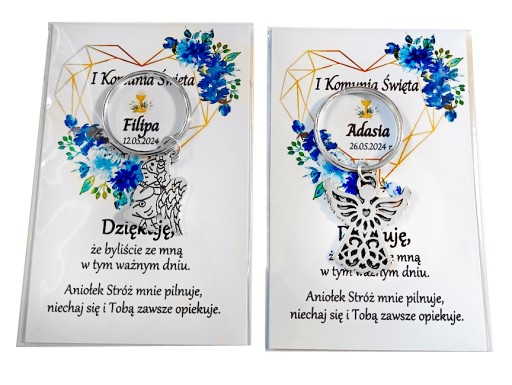 I Komunia Święta
Filipa
12.05.2024
Dziękuję,
że byliście ze mną
w tym ważnym dniu.
Aniołek Stróż mnie pilnuje,
niechaj się i Tobą zawsze opiekuje.
I Komunia Święta
Adasia
26.05.2024 r.
Dziękuję,
że byliście ze mną
w tym ważnym dniu.
Aniołek Stróż mnie pilnuje,
niechaj się i Tobą zawsze opiekuje.